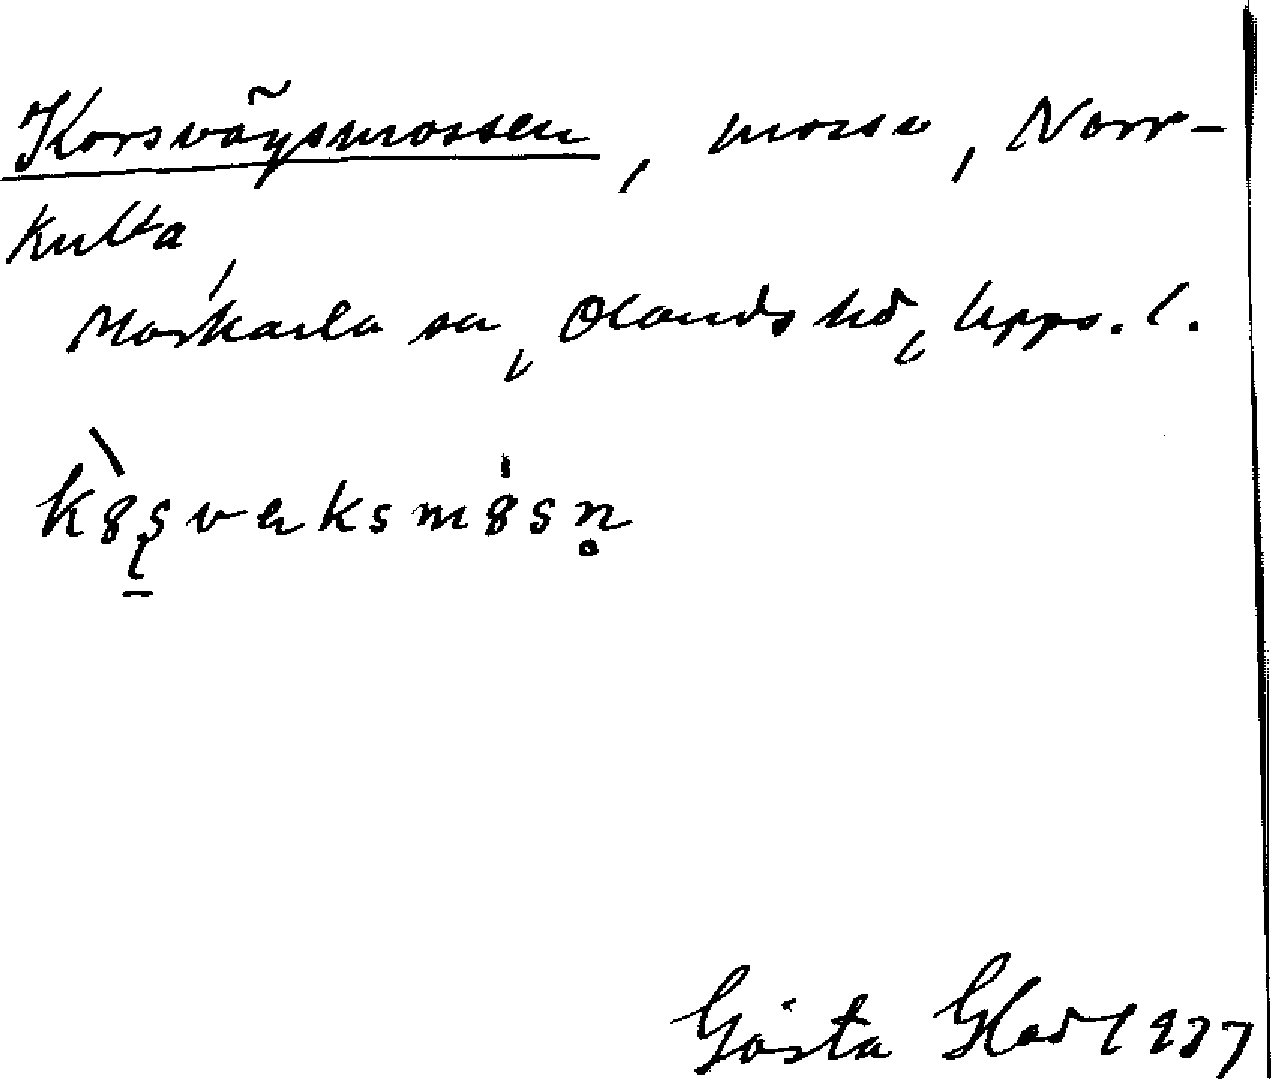 Korsvägsmossen, mosse, Norr-
kulla
Morkarla sn, Olands hd, Upps. l.
Gösta Glad 1937